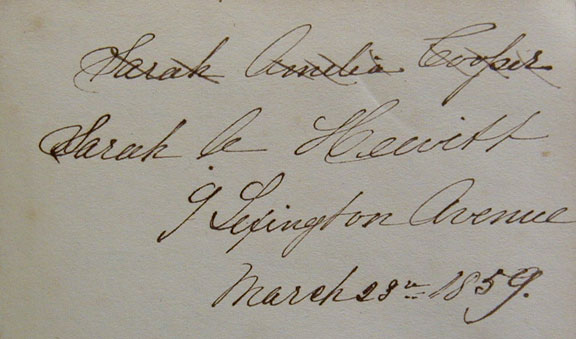 Sarah Amelia Cooper
Sarah C Hewitt
9 Lexington Avenue
March 23rd 1859.